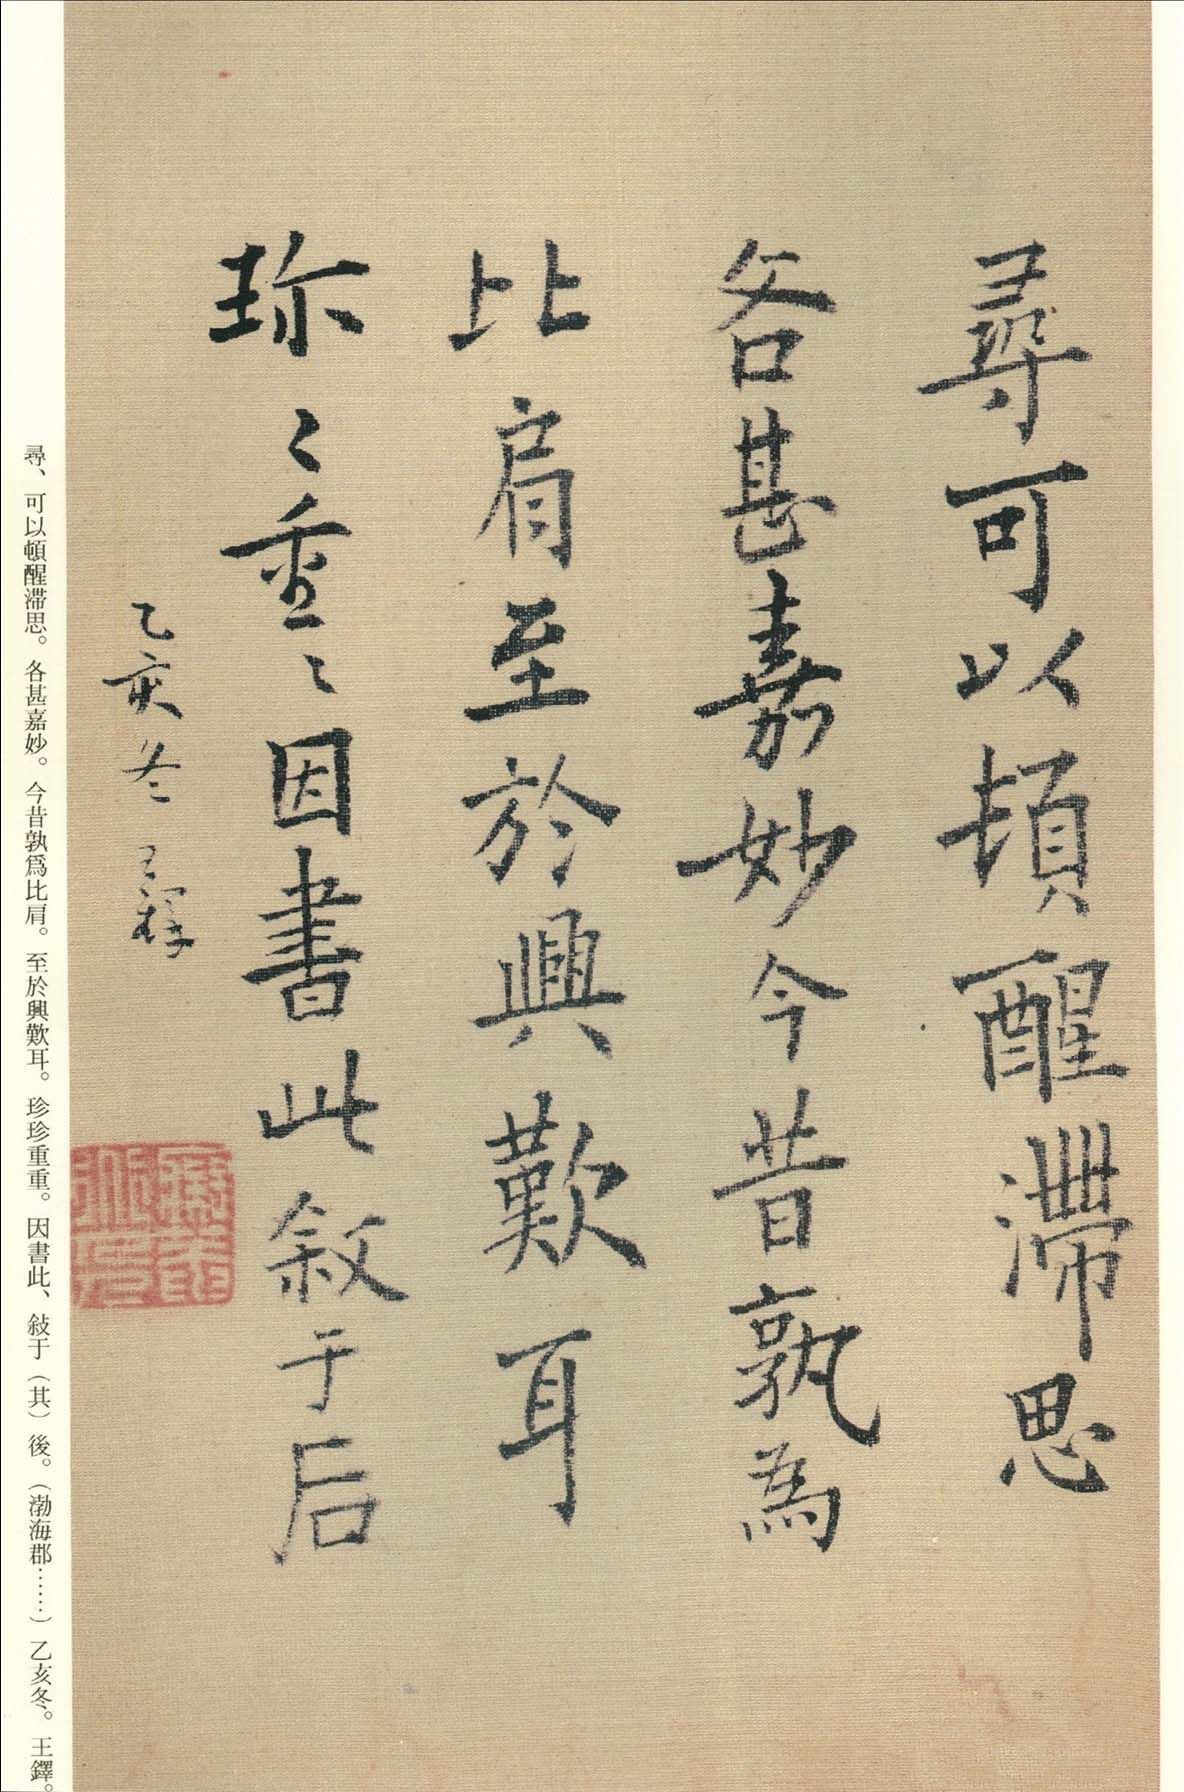 尋可以頓醒滯思
各甚嘉妙今昔孰為
比肩至於興歎耳
珎〻重〻因書此敘于后
乙亥冬王鐸
尋、可以頓醒滯思。各甚嘉妙。今昔孰爲比肩。至於興歎耳。珍珍重重。因書此、敍于（其）後。（渤海郡……）乙亥冬。王鐸。